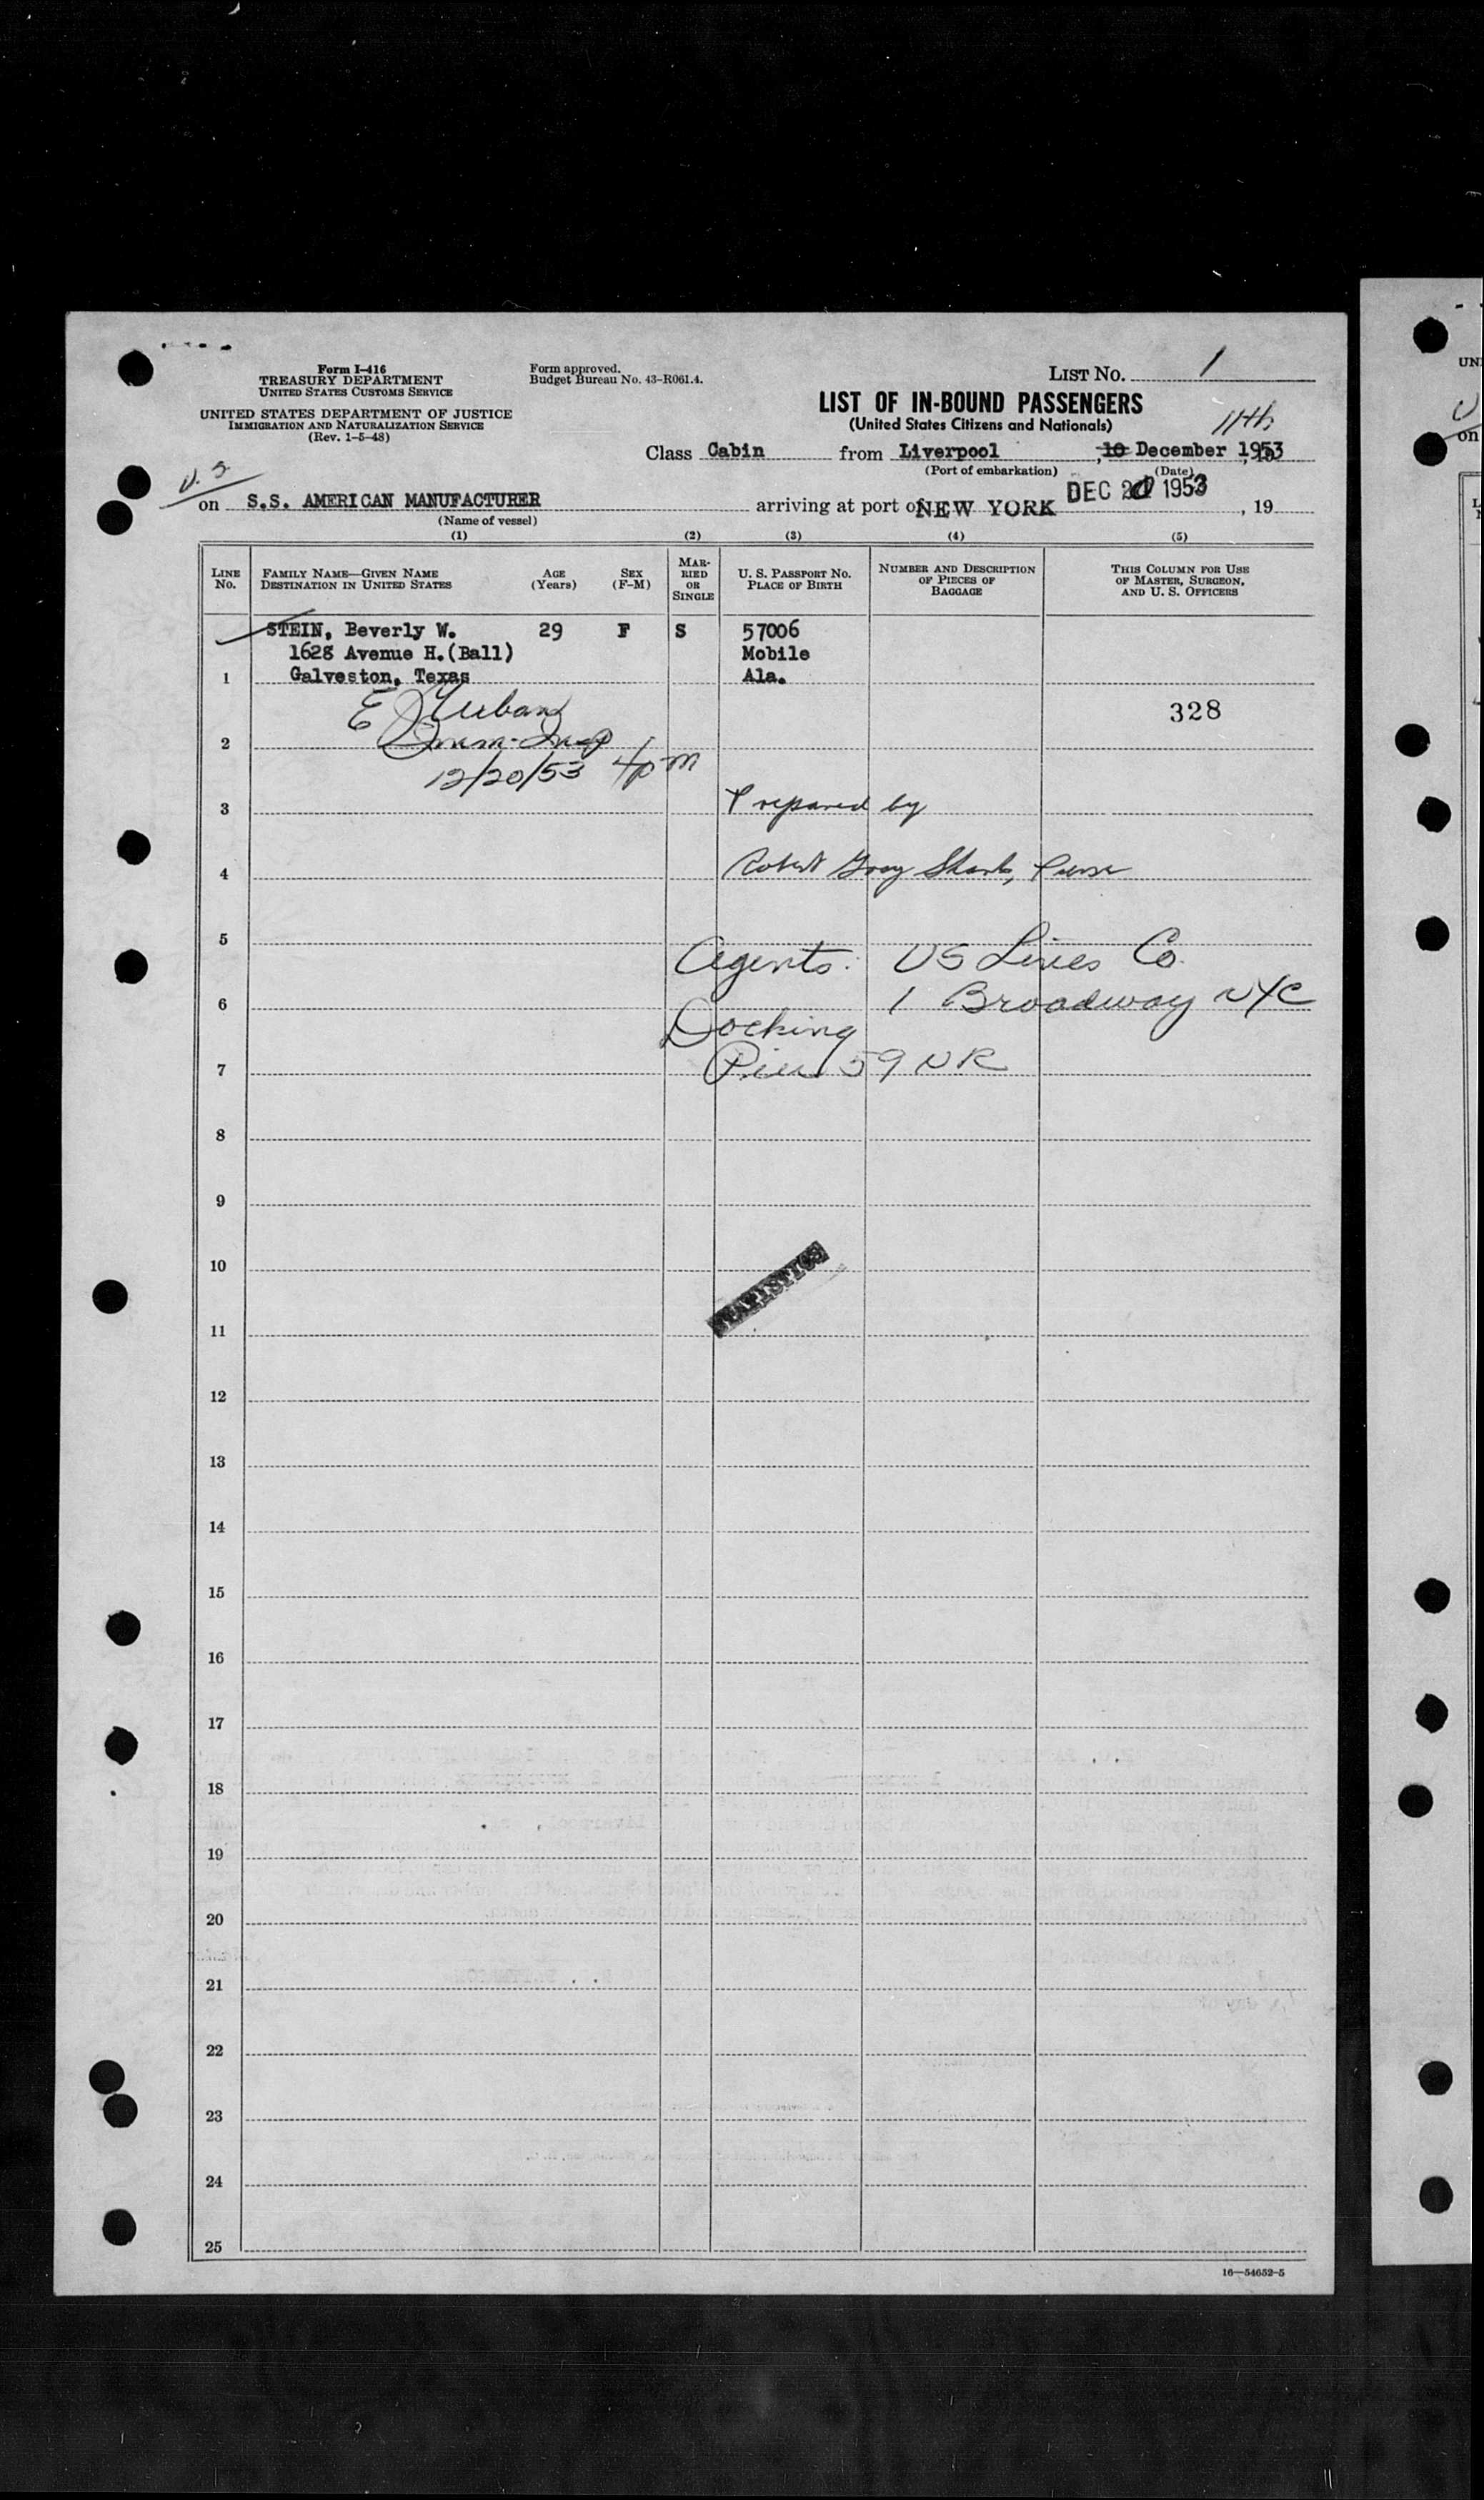 Form I-416
TREASURY DEPARTMENT
UNITED STATES CUSTOMS SERVICE
UNITED STATES DEPARTMENT OF JUSTICE
IMMIGRATION AND NATURALIZATION SERVICE
(Rev. 1-5-48)
Form approved.
Budget Bureau No. 43-R061.4.
LIST NO. 1
LIST OF IN-BOUND PASSENGERS
(United States Citizens and Nationals)
11th
Class Cabin from Liverpool, 10 December 1953
(Port of embarkation) (Date)
U.S.
on S.S. AMERICAN MANUFACTURER arriving at port of NEW YORK DEC 20 1953, 19
(Name of vessel)
(1) (2) (3) (4) (5)
LINE NO. FAMILY NAME—GIVEN NAME DESTINATION IN UNITED STATES AGE (Years) SEX (F-M) MARRIED OR SINGLE U. S. PASSPORT NO. PLACE OF BIRTH NUMBER AND DESCRIPTION OF PIECES OF BAGGAGE THIS COLUMN FOR USE OF MASTER, SURGEON, AND U. S. OFFICERS
STEIN, Beverly W. 29 F S 57006
1628 Avenue H.(Ball) Mobile
1 Galveston, Texas Ala.
E J Urban
328
2 Imm-Insp
12/20/53 4pm
3 Prepared by
4 Robert Gray
5
Agents: US Lines Co.
6 1 Broadway NYC
Docking
7 Pier 59 NR
8
9
10
STATISTICS
11
12
13
14
15
16
17
18
19
20
21
22
23
24
25
16—54652-5
UN
on